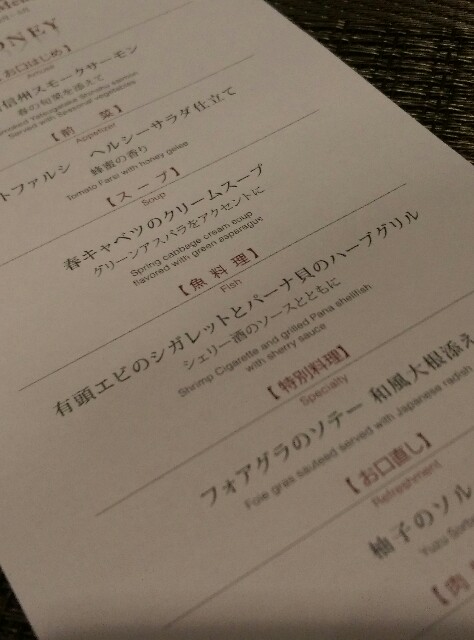 ONEY
【お口はじめ】
Amuse
信州スモークサーモン
春の旬菜を添えて
Shinshu salmon
Served with seasonal vegetables
【前 菜】
Appetizer
トファルシ ヘルシーサラダ仕立て
蜂蜜の香り
Tomato Farsi with honey gelee
【スープ】
Soup
春キャベツのクリームスープ
グリーンアスパラをアクセントに
Spring cabbage cream coup
flavored with green asparagus
【魚 料 理】
Fish
有頭エビのシガレットとパーナ貝のハーブグリル
シェリー酒のソースとともに
Shrimp Cigarette and grilled Pana shellfish
with sherry sauce
【特別料理】
Specialty
フォアグラのソテー 和風大根添え
Foie gras sauteed served with Japanese radish
【お口直し】
Refreshment
柚子のソル
Yuzu
【肉